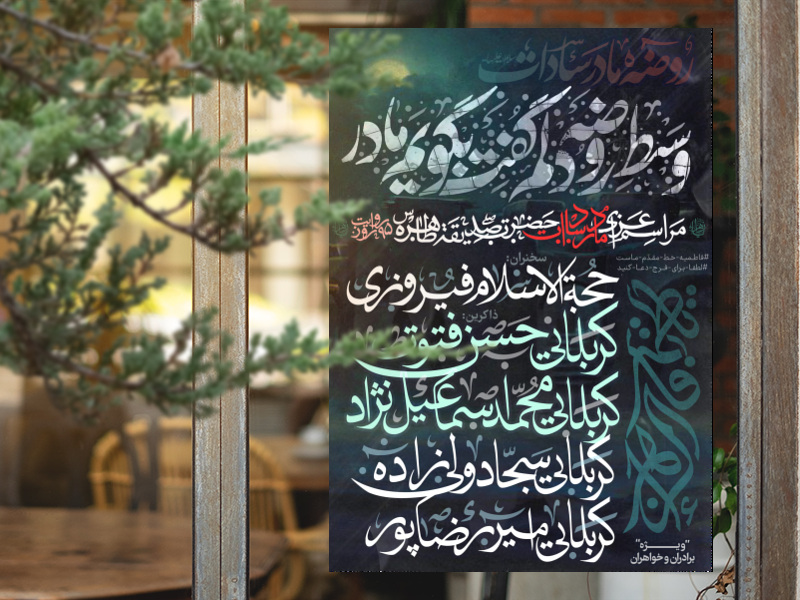 روضه مادر سادات
وسط روضه دلم گفت بگویم مادر
مراسم عزای مادر سادات حضرت صدیقه طاهره س
روایت ۹۵ روز
#فاطمیه-خط-مقدم-ماست
#لطفا-برای-فرج-دعا-کنید
سخنران:
حجة الاسلام فیروزی
ذاکرین:
کربلائی حسن فتوتی
کربلایی محمد اسماعیل نژاد
کربلایی سجاد ولی زاده
کربلایی امیر رضاپور
"ویـــژه"
برادران و خواهران